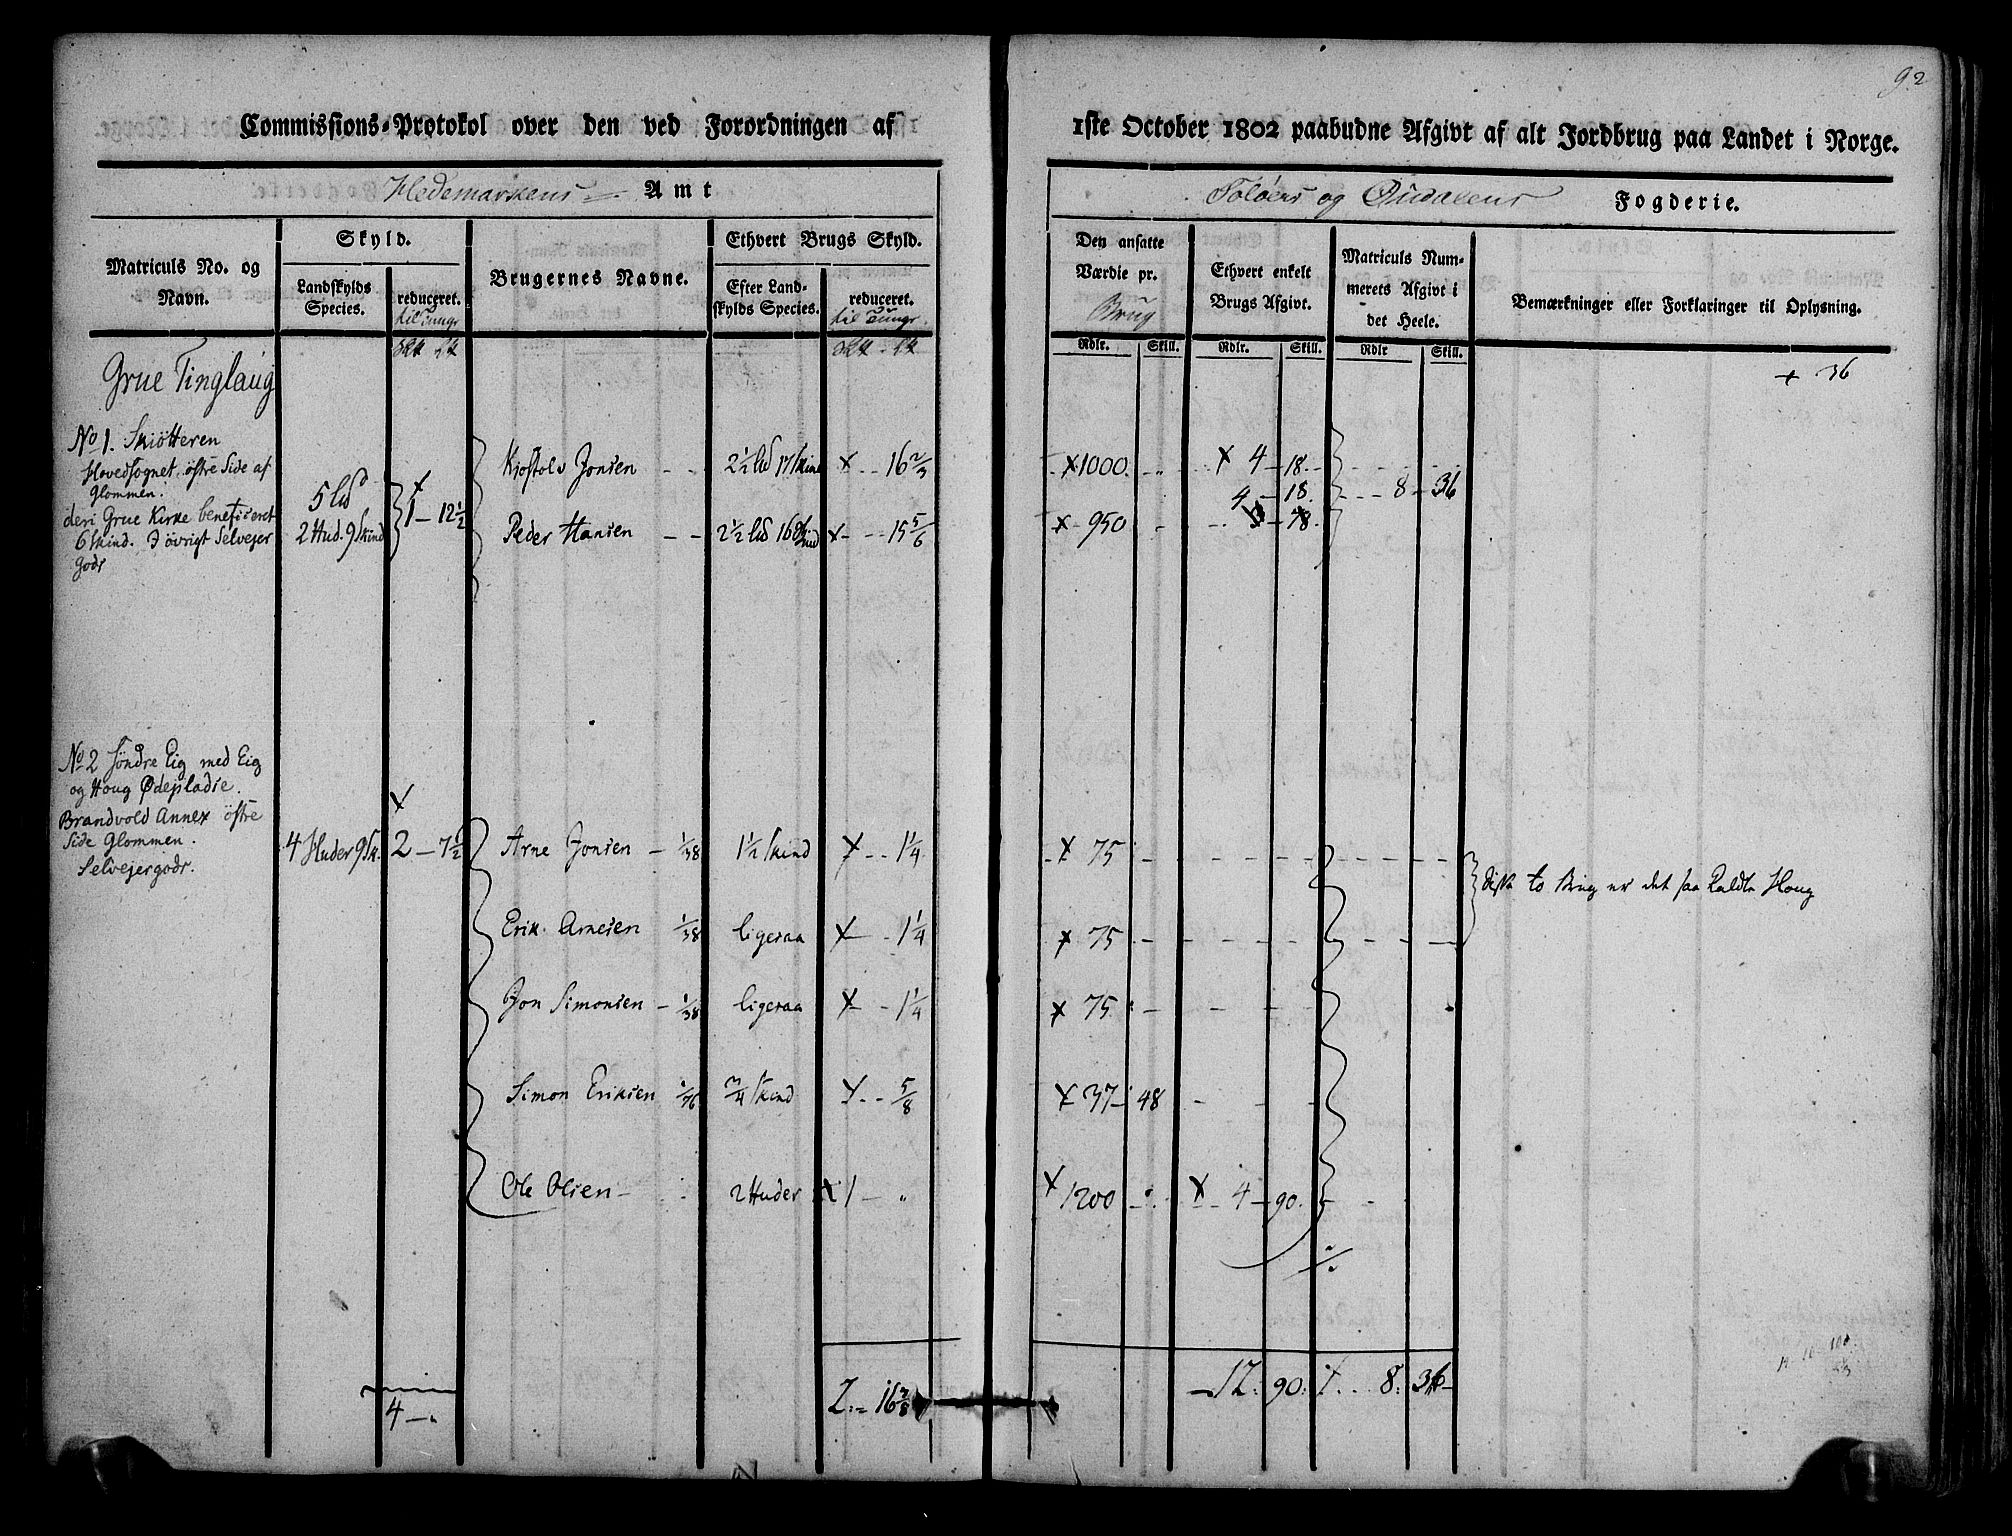 92
Commissions-Protokol over den ved Forordningen af 1ste October 1802 paabudne Afgivt af alt Jordbrug paa Landet i Norge.
Hedemarkens Amt
Soløers og Oudalens Fogderie.
Matriculs No. og Navn.
Skyld.
Landskylds Species.
reduceret. til Tungr
Brugernes Navne.
Ethvert Brugs Skyld.
Efter Landskylds Species.
reduceret. til Tungr.
Den ansatte Værdie pr. Brug
Ethvert enkelt Brugs Afgivt.
Matriculs Nummerets Afgivt i det Heele.
Bemærkninger eller Forklaringer til Oplysning.
Rdlr. Skill. Rdlr. Skill. Rdlr Skill.
Grue Tinglaug
+ 36
No 1. Skiötteren
Hovedsognet östre Side af
Glommen.
deri Grue Kirke beneficeret
6 skind. I övrigt Selvejer
Godr
5 Lis
2 Hud. 9 Skind
1 - 12 1/2
Kiostolv Jonsen - - 2 1/2 Lis 17 skind x - - 16 2/3 x 1000 x 4 - 18
4 - 18. - - - 8 - 36
Peder Hansen - - 2 1/2 Lis 16 x - - 15 5/6 x - 950
No 2 Søndre Eig med Eig
og Houg Ødepladse.
Brandvold Annex östre
Side Glommen.
Selvejergodr.
4 Huder 9 Sk. 2 - 7 1/2
Arne Jonsen - 1/38 1 1/2 skind x - - 1 1/4 x 75
disse to Brug er det saa kaldte Houg
Erik Arnesen 1/38 ligeraa x - - 1 1/4 x 75
Jon Simonsen - 1/38 ligeraa x - - 1 1/4 x 75
Simon Eriksen 1/76 3/4 skind x - - 5/8 x 37 - 48
Ole Olsen - 2 Huder x 1 - „ x 1200 x - 4 - 90
4 - „
2 - 16
12 : 90 : 8 : 36